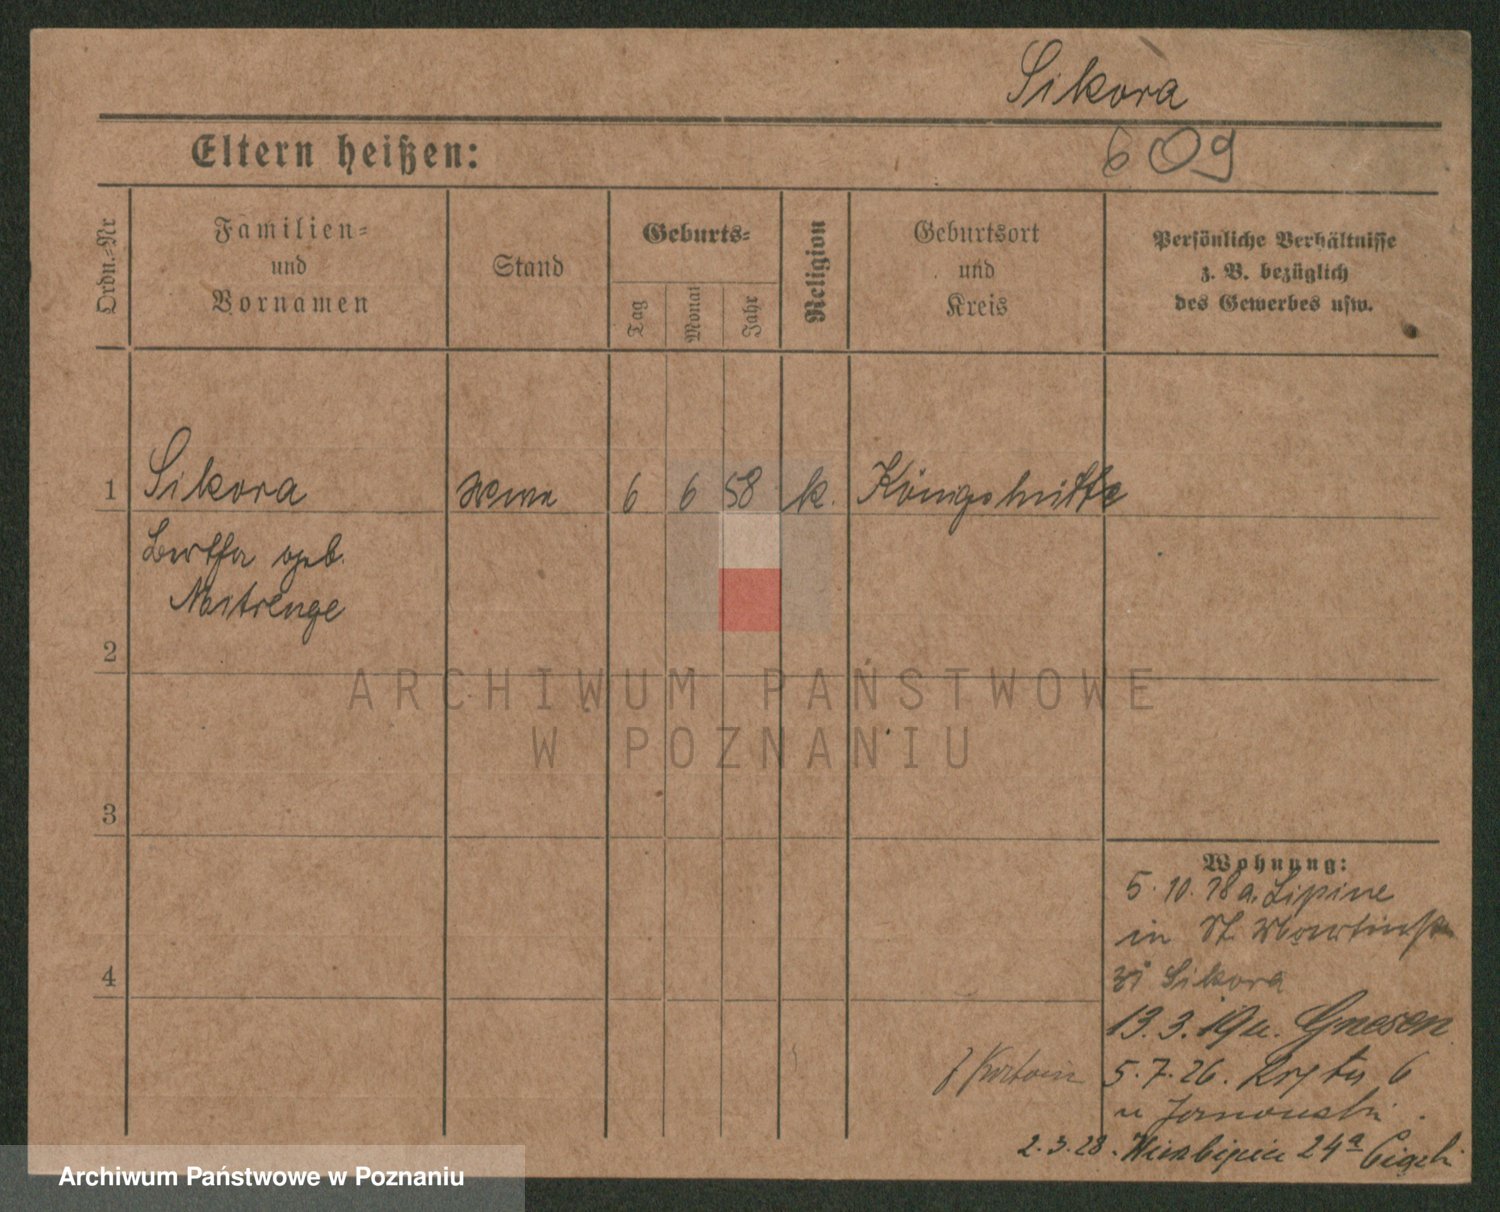 Sikora
609
Eltern heißen:
Ordn.-Nr
Familien-
und
Vornamen
Stand
Geburts-
Tag
Monat
Jahr
Religion
Geburtsort
und
Kreis
Persönliche Verhältnisse
z. B. bezüglich
des Gewerbes usw.
1 Sikora 6 6 58 k. Königshütte
Bertha geb.
2
ARCHIWUM PAŃSTWOWE
W POZNANIU
3
Wohnung:
5.10.18 a. Lipine
in St. Martinstr.
4
Sikora
13.3.19 u. Gnesen
5.7.26. 6
u
2.3.28. 24a
Archiwum Państwowe w Poznaniu